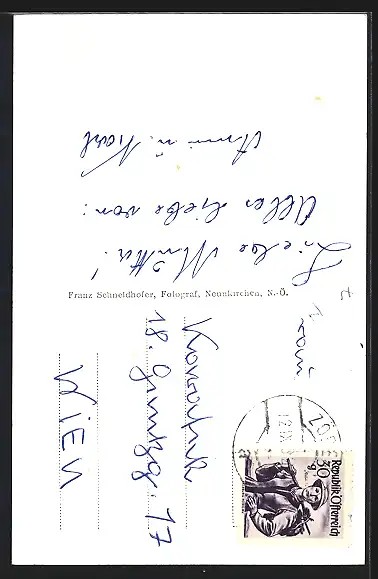 Liebe Mutter!
Alles Liebe von:
Anni u. Karl
Franz Schneidhofer, Fotograf, Neunkirchen, N.-Ö.
Frau
18.
17
WIEN
Republik Österreich
30
g